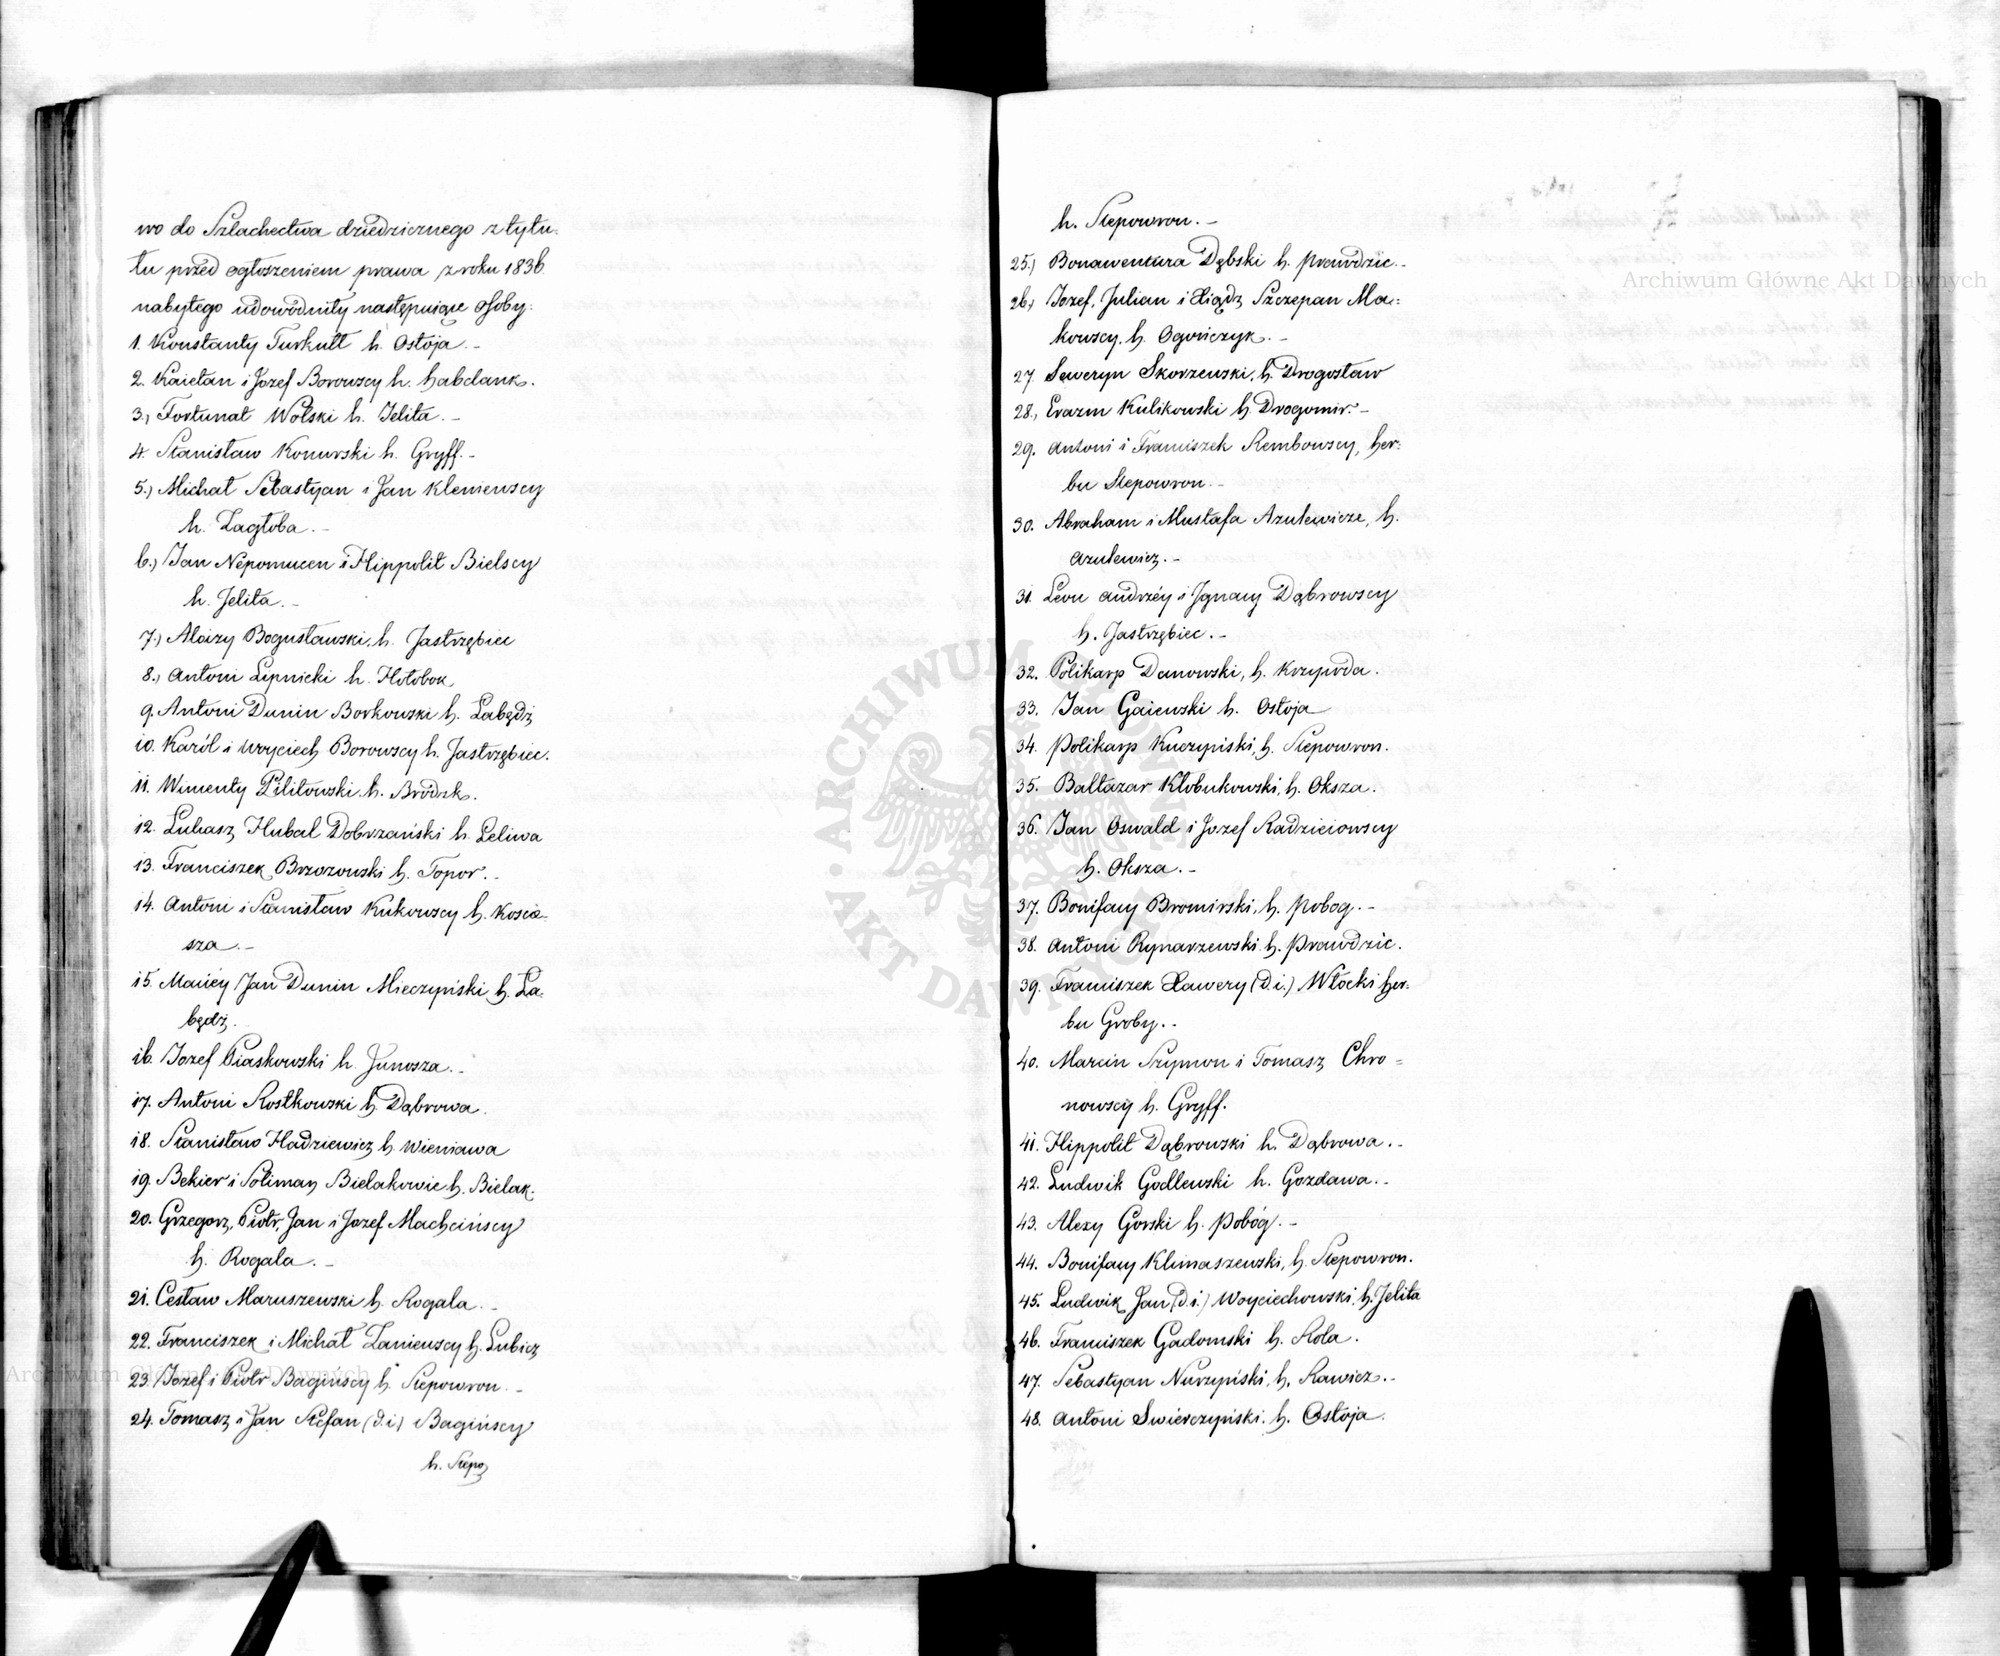 wo do Szlachectwa dziedzicznego z tytu-
łu przed ogłoszeniem prawa z roku 1836
nabytego udowodniły następujące Osoby:
1. Konstanty Turkułł h. Ostoja.-
2. Kaietan i Jozef Borowscy h. habdank.
3.) Fortunat Wolski h. Jelita.-
4. Stanisław Konarski h. Gryff.-
5.) Michał Sebastyan i Jan Kleniewscy
h. Zagłoba.-
6.) Jan Nepomucen i Hippolit Bielscy
h. Jelita.-
7.) Aloizy Bogusławski, h. Jastrzębiec
8.) Antoni Lipnicki h. Hołobok
9. Antoni Dunin Borkowski h. Łabędź
10. Karól i Woyciech Borowscy h. Jastrzębiec.
11. Wincenty Pilitowski h. Bródzk.
12. Łukasz Hubal Dobrzański h. Leliwa
13. Franciszek Brzozowski h. Topor.-
14. Antoni i Stanisław Kukowscy h. Koscie-
sza.-
15. Maciéy Jan Dunin Mieczyński h. Ła-
będź.
16. Jozef Piaskowski h. Junosza.-
17. Antoni Rostkowski h. Dąbrowa.
18. Stanisław Hadziewicz h. Wieniawa
19. Bekier i Soliman Bielakowie h. Bielak.
20. Grzegorz, Piotr, Jan i Jozef Machcińscy
h. Rogala.-
21. Cesław Maruszewski h. Rogala.-
22. Franciszek i Michał Zaniewscy h. Lubicz
23. Jozef i Piotr Bagińscy h. Slepowron.-
24. Tomasz i Jan Stefan (d.i.) Bagińscy
h. Slepo
h. Slepowron.-
25.) Bonawentura Dębski h. Prawdzic.-
26.) Jozef, Julian i Xiądz Szczepan Ma-
kowscy, h. Ogończyk.-
27. Seweryn Skorzewski, h. Drogosław
28.) Erazm Kulikowski h. Drogomir.-
29. Antoni i Franciszek Rembowscy, her-
bu Slepowron.-
30. Abraham i Mustafa Azulewicze, h.
Azulewicz.-
31. Leon Andrzéy i Ignacy Dąbrowscy
h. Jastrzębiec.-
32. Polikarp Danowski, h. Krzywda.
33. Jan Gaiewski h. Ostoja
34. Polikarp Kuczyński, h. Slepowron.
35. Baltazar Kłobukowski, h. Oksza.
36. Jan Oswald i Jozef Radzieiowscy
h. Oksza.-
37. Bonifacy Bromirski, h. Pobog.-
38. Antoni Rynarzewski h. Prawdzic.
39. Franciszek Xawery (d.i.) Włocki her-
bu Groby.-
40. Marcin Szymon i Tomasz Chro-
nowscy h. Gryff.
41. Hippolit Dąbrowski h. Dąbrowa.-
42. Ludwik Godlewski h. Gozdawa.-
43. Alexy Gorski h. Pobóg.-
44. Bonifacy Klimaszewski, h. Slepowron.
45. Ludwik Jan (d.i.) Woyciechowski, h. Jelita
46. Franciszek Gadomski h. Rola.
47. Sebastyan Nurzyński, h. Rawicz.-
48. Antoni Swierczyński, h. Ostoja.
Archiwum Główne Akt Dawnych
Archiwum Główne Akt Dawnych
ARCHIWUM GŁÓWNE AKT DAWNYCH